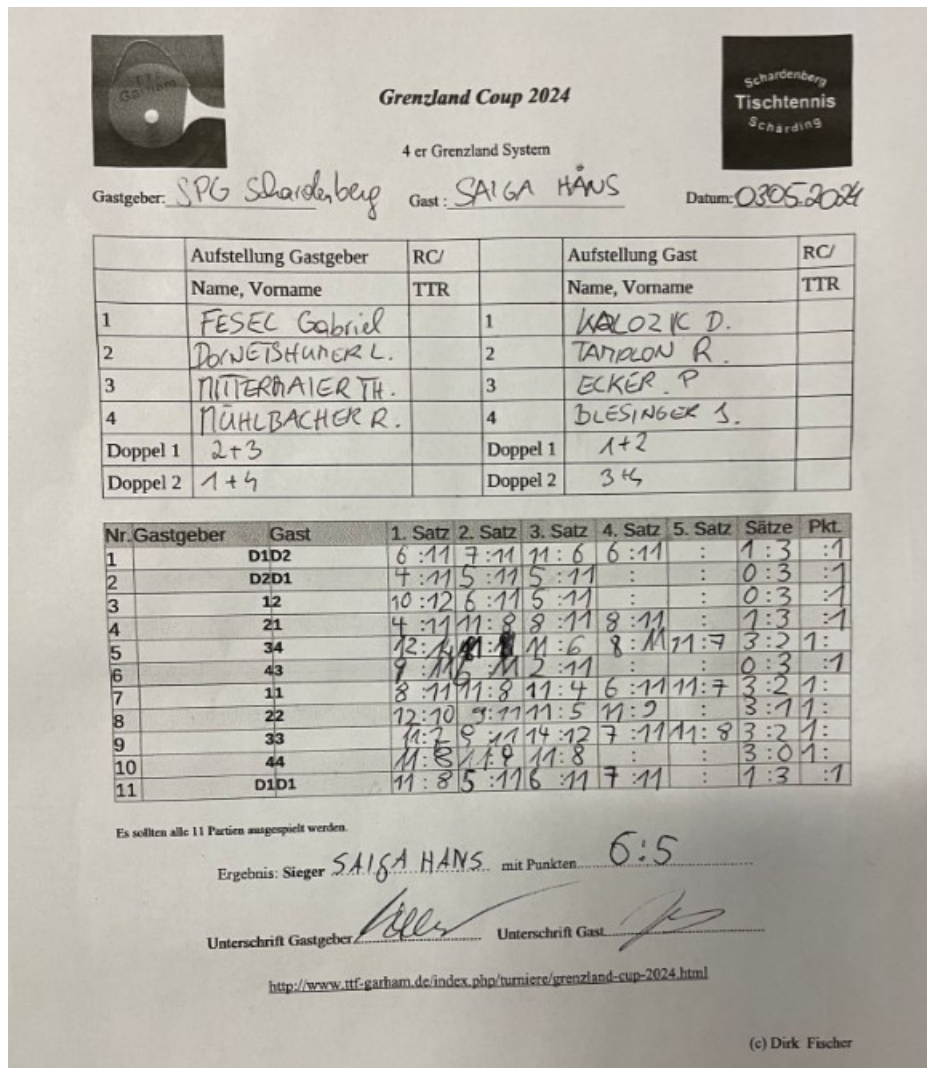 TTF
Garham
Schardenberg
Tischtennis
Schärding
Grenzland Coup 2024
4 er Grenzland System
Gastgeber: SPG Schardenberg Gast : SAIGA HANS Datum: 03.05.2024
Aufstellung Gastgeber RC/ Aufstellung Gast RC/
Name, Vorname TTR Name, Vorname TTR
1 FESEC Gabriel 1 KALOZIC D.
2 2 TAMPLON R.
3 MITTERMAIER TH. 3 ECKER P
4 MÜHLBACHER R. 4 BLESINGER J.
Doppel 1 2+3 Doppel 1 1+2
Doppel 2 1+4 Doppel 2 3+4
Nr. Gastgeber Gast 1. Satz 2. Satz 3. Satz 4. Satz 5. Satz Sätze Pkt.
1 D1D2 6 :11 7 :11 11 : 6 6 :11 : 1 : 3 :1
2 D2D1 4 :11 5 :11 5 :11 : : 0 : 3 :1
3 12 10 :12 6 :11 5 :11 : : 0 : 3 :1
4 21 4 :11 11 : 8 8 :11 8 :11 : 1 : 3 :1
5 34 12: 14 11 : 6 8 : 11 11 : 7 3 : 2 1 :
6 43 : 11 : 11 2 :11 : : 0 : 3 :1
7 11 8 :11 11 : 8 11 : 4 6 :11 11 : 7 3 : 2 1 :
8 22 12:10 9 :11 11 : 5 11 : 9 : 3 :1 1 :
9 33 11: 7 9 :11 14 :12 7 :11 11 : 8 3 : 2 1 :
10 44 11 : 8 11 : 9 11 : 8 : : 3 : 0 1 :
11 D1D1 11 : 8 5 :11 6 :11 7 :11 : 1 : 3 :1
Es sollten alle 11 Partien ausgespielt werden.
Ergebnis: Sieger SAIGA HANS mit Punkten 6:5
Unterschrift Gastgeber Unterschrift Gast
http://www.ttf-garham.de/index.php/turniere/grenzland-cup-2024.html
(c) Dirk Fischer